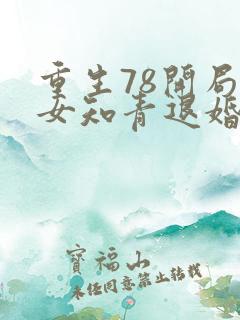 重生78開局
女知青退婚
寶福山
未经同意禁止转载